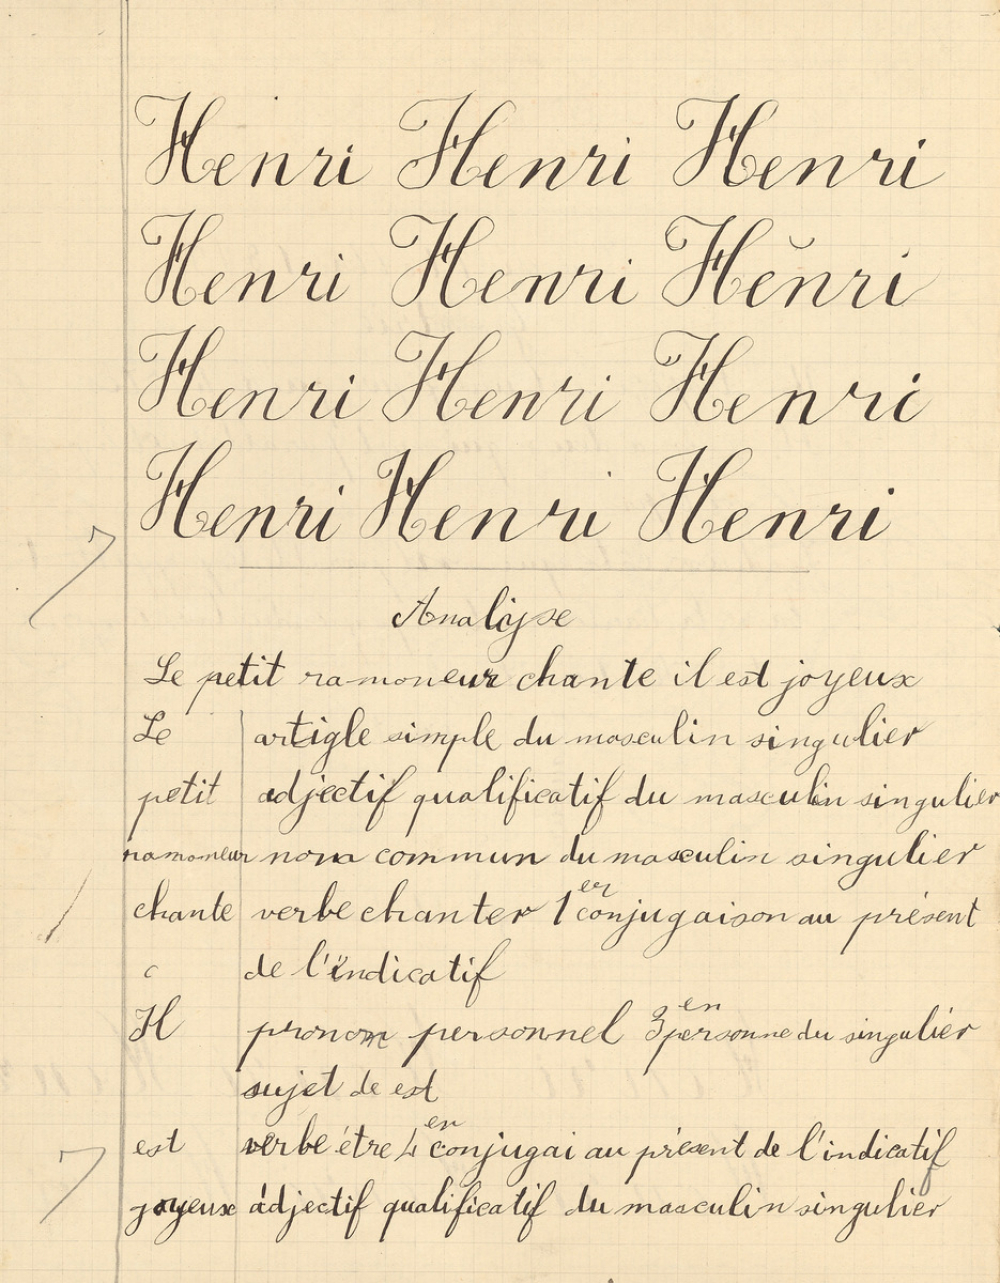 Henri Henri Henri
Henri Henri Henri
Henri Henri Henri
Henri Henri Henri
Analyse
Le petit ramoneur chante il est joyeux
Le artigle simple du masculin singulier
petit adjectif qualificatif du masculin singulier
ramoneur nom commun du masculin singulier
chante verbe chanter 1er conjugaison au présent
c de l'indicatif
Il pronom personnel 3en personne du singulier
sujet de est
est verbe être 4en conjugai au présent de l'indicatif
joyeux adjectif qualificatif du masculin singulier